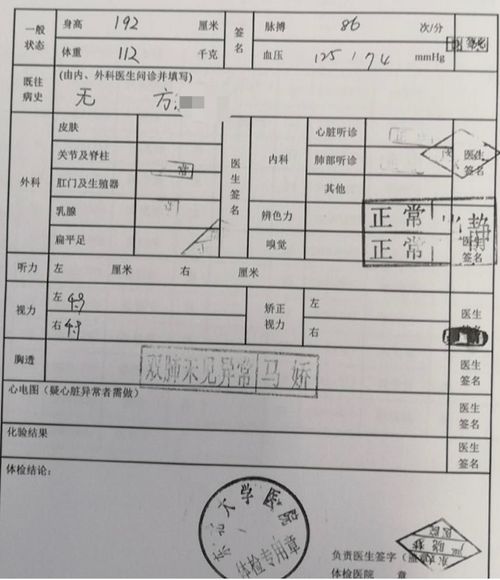 一般状态 身高 192 厘米 签名 脉搏 86 次/分
体重 112 千克 血压 125/74 mmHg
既往病史 (由内、外科医生问诊并填写)
无 方
外科 皮肤 医生签名 内科 心脏听诊 医生签名
关节及脊柱 肺部听诊
肛门及生殖器 其他
乳腺 辨色力 正常
扁平足 嗅觉 正常 医生签名
听力 左 厘米 右 厘米
视力 左 4.9 矫正视力 左 医生签名
右 右
胸透 双肺未见异常 马娇 医生签名
心电图(疑心脏异常者需做) 医生签名
化验结果 医生签名
体检结论:
大学医院
体检专用章
负责医生签字(盖章)
体检医院 章